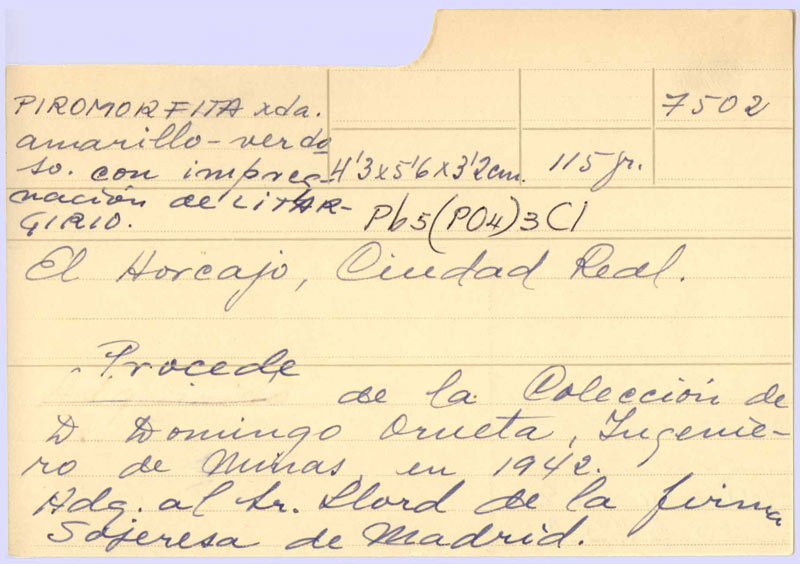 7502
PIROMORFITA xda.
amarillo-verdo
so. con impreg-
nación de LITAR-
GIRIO.
4'3x5'6x3'2cm.
115gr.
Pb5(PO4)3Cl
El Horcajo, Ciudad Real.
Procede
de la Colección de
D. Domingo Orueta, Ingenie-
ro de Minas, en 1942.
Adq. al Sr. Llord de la firma
Sojeresa de Madrid.